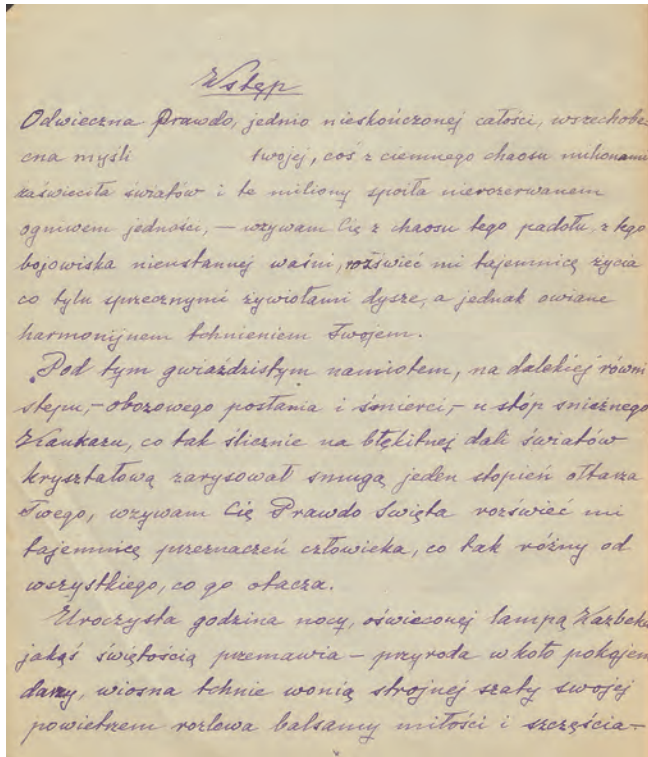 Wstęp
Odwieczna Prawdo, jednio nieskończonej całości, wszechobe-
cna myśli twojej, coś z ciemnego chaosu
zaświeciła światów i te miliony spoiła nierozerwanem
ogniwem jedności, — wzywam Cię z chaosu tego padołu, z tego
bojowiska nieustannej waśni, rozświeć mi tajemnicę życia
co tylu sprzecznymi żywiołami dysze, a jednak owiane
harmonijnem tchnieniem Twojem.
Pod tym gwiaździstym namiotem, na dalekiej równi
stepu, – obozowego posłania i śmierci, – u stóp snieżnego
Kaukazu, co tak ślicznie na błękitnej dali światów
kryształową zarysował smugą jeden stopień ołtarza
Twego, wzywam Cię Prawdo Święta rozświeć mi
tajemnicę przeznaczeń człowieka, co tak różny od
wszystkiego, co go otacza.
Uroczysta godzina nocy, oświeconej lampą Kazbeku
jakąś świętością przemawia – przyroda w koło pokojem
darzy, wiosna tchnie wonią strojnej szaty swojej
powietrzem rozlewa balsamy miłości i szczęścia –